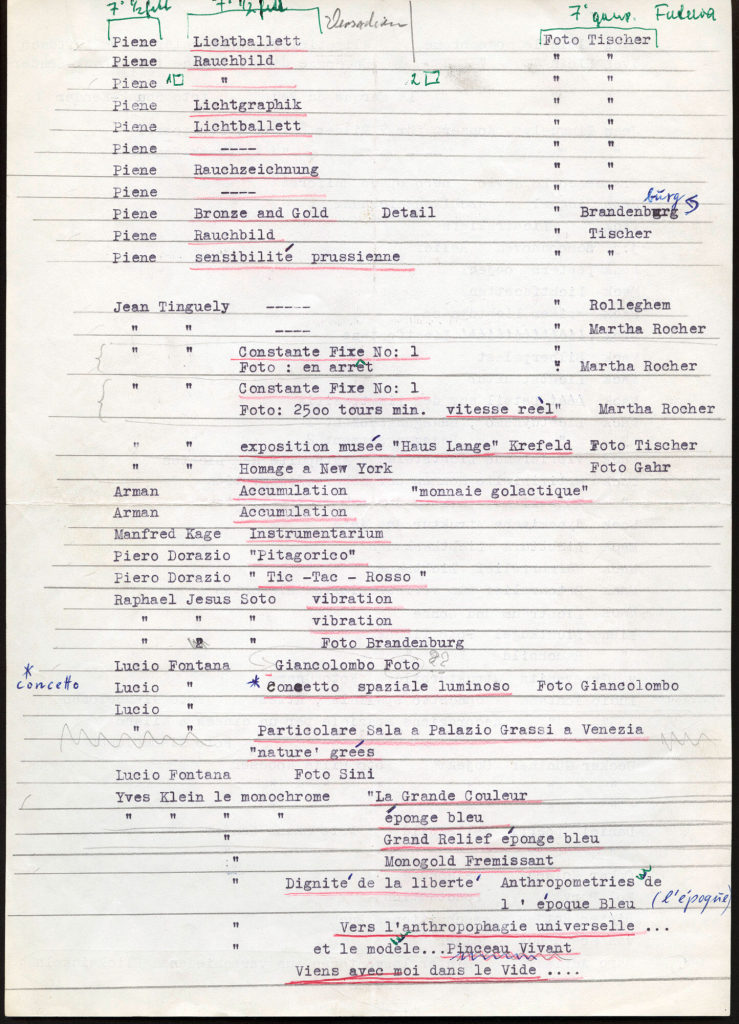 7° ½ fett 7° ½ fett 7° gansp. Futura
Piene Lichtballett Foto Tischer
Piene Rauchbild " "
Piene 1 " 2 " "
Piene Lichtgraphik " "
Piene Lichtballett " "
Piene ---- " "
Piene Rauchzeichnung " "
Piene ---- " "
burg
Piene Bronze and Gold Detail " Brandenburg
Piene Rauchbild " Tischer
Piene sensibilité prussienne " "
Jean Tinguely ----- " Rolleghem
" " ---- " Martha Rocher
" " Constante Fixe No: 1 "
Foto : en arrêt " Martha Rocher
" " Constante Fixe No: 1
Foto: 25oo tours min. vitesse reèl" Martha Rocher
" " exposition musée "Haus Lange" Krefeld Foto Tischer
" " Homage a New York Foto Gahr
Arman Accumulation "monnaie golactique"
Arman Accumulation
Manfred Kage Instrumentarium
Piero Dorazio "Pitagorico"
Piero Dorazio " Tic -Tac - Rosso "
Raphael Jesus Soto vibration
" " " vibration
" " " Foto Brandenburg
Lucio Fontana Giancolombo Foto ??
* concetto Lucio " * concetto spaziale luminoso Foto Giancolombo
Lucio "
" " Particolare Sala a Palazio Grassi a Venezia
"nature' greés
Lucio Fontana Foto Sini
Yves Klein le monochrome "La Grande Couleur
" " " " éponge bleu
" Grand Relief éponge bleu
" Monogold Fremissant
" Dignité de la liberté Anthropometries de
l ' époque Bleu (l'époque)
" Vers l'anthropophagie universelle ...
" et le modèle...Pinceau Vivant
Viens avec moi dans le Vide ....